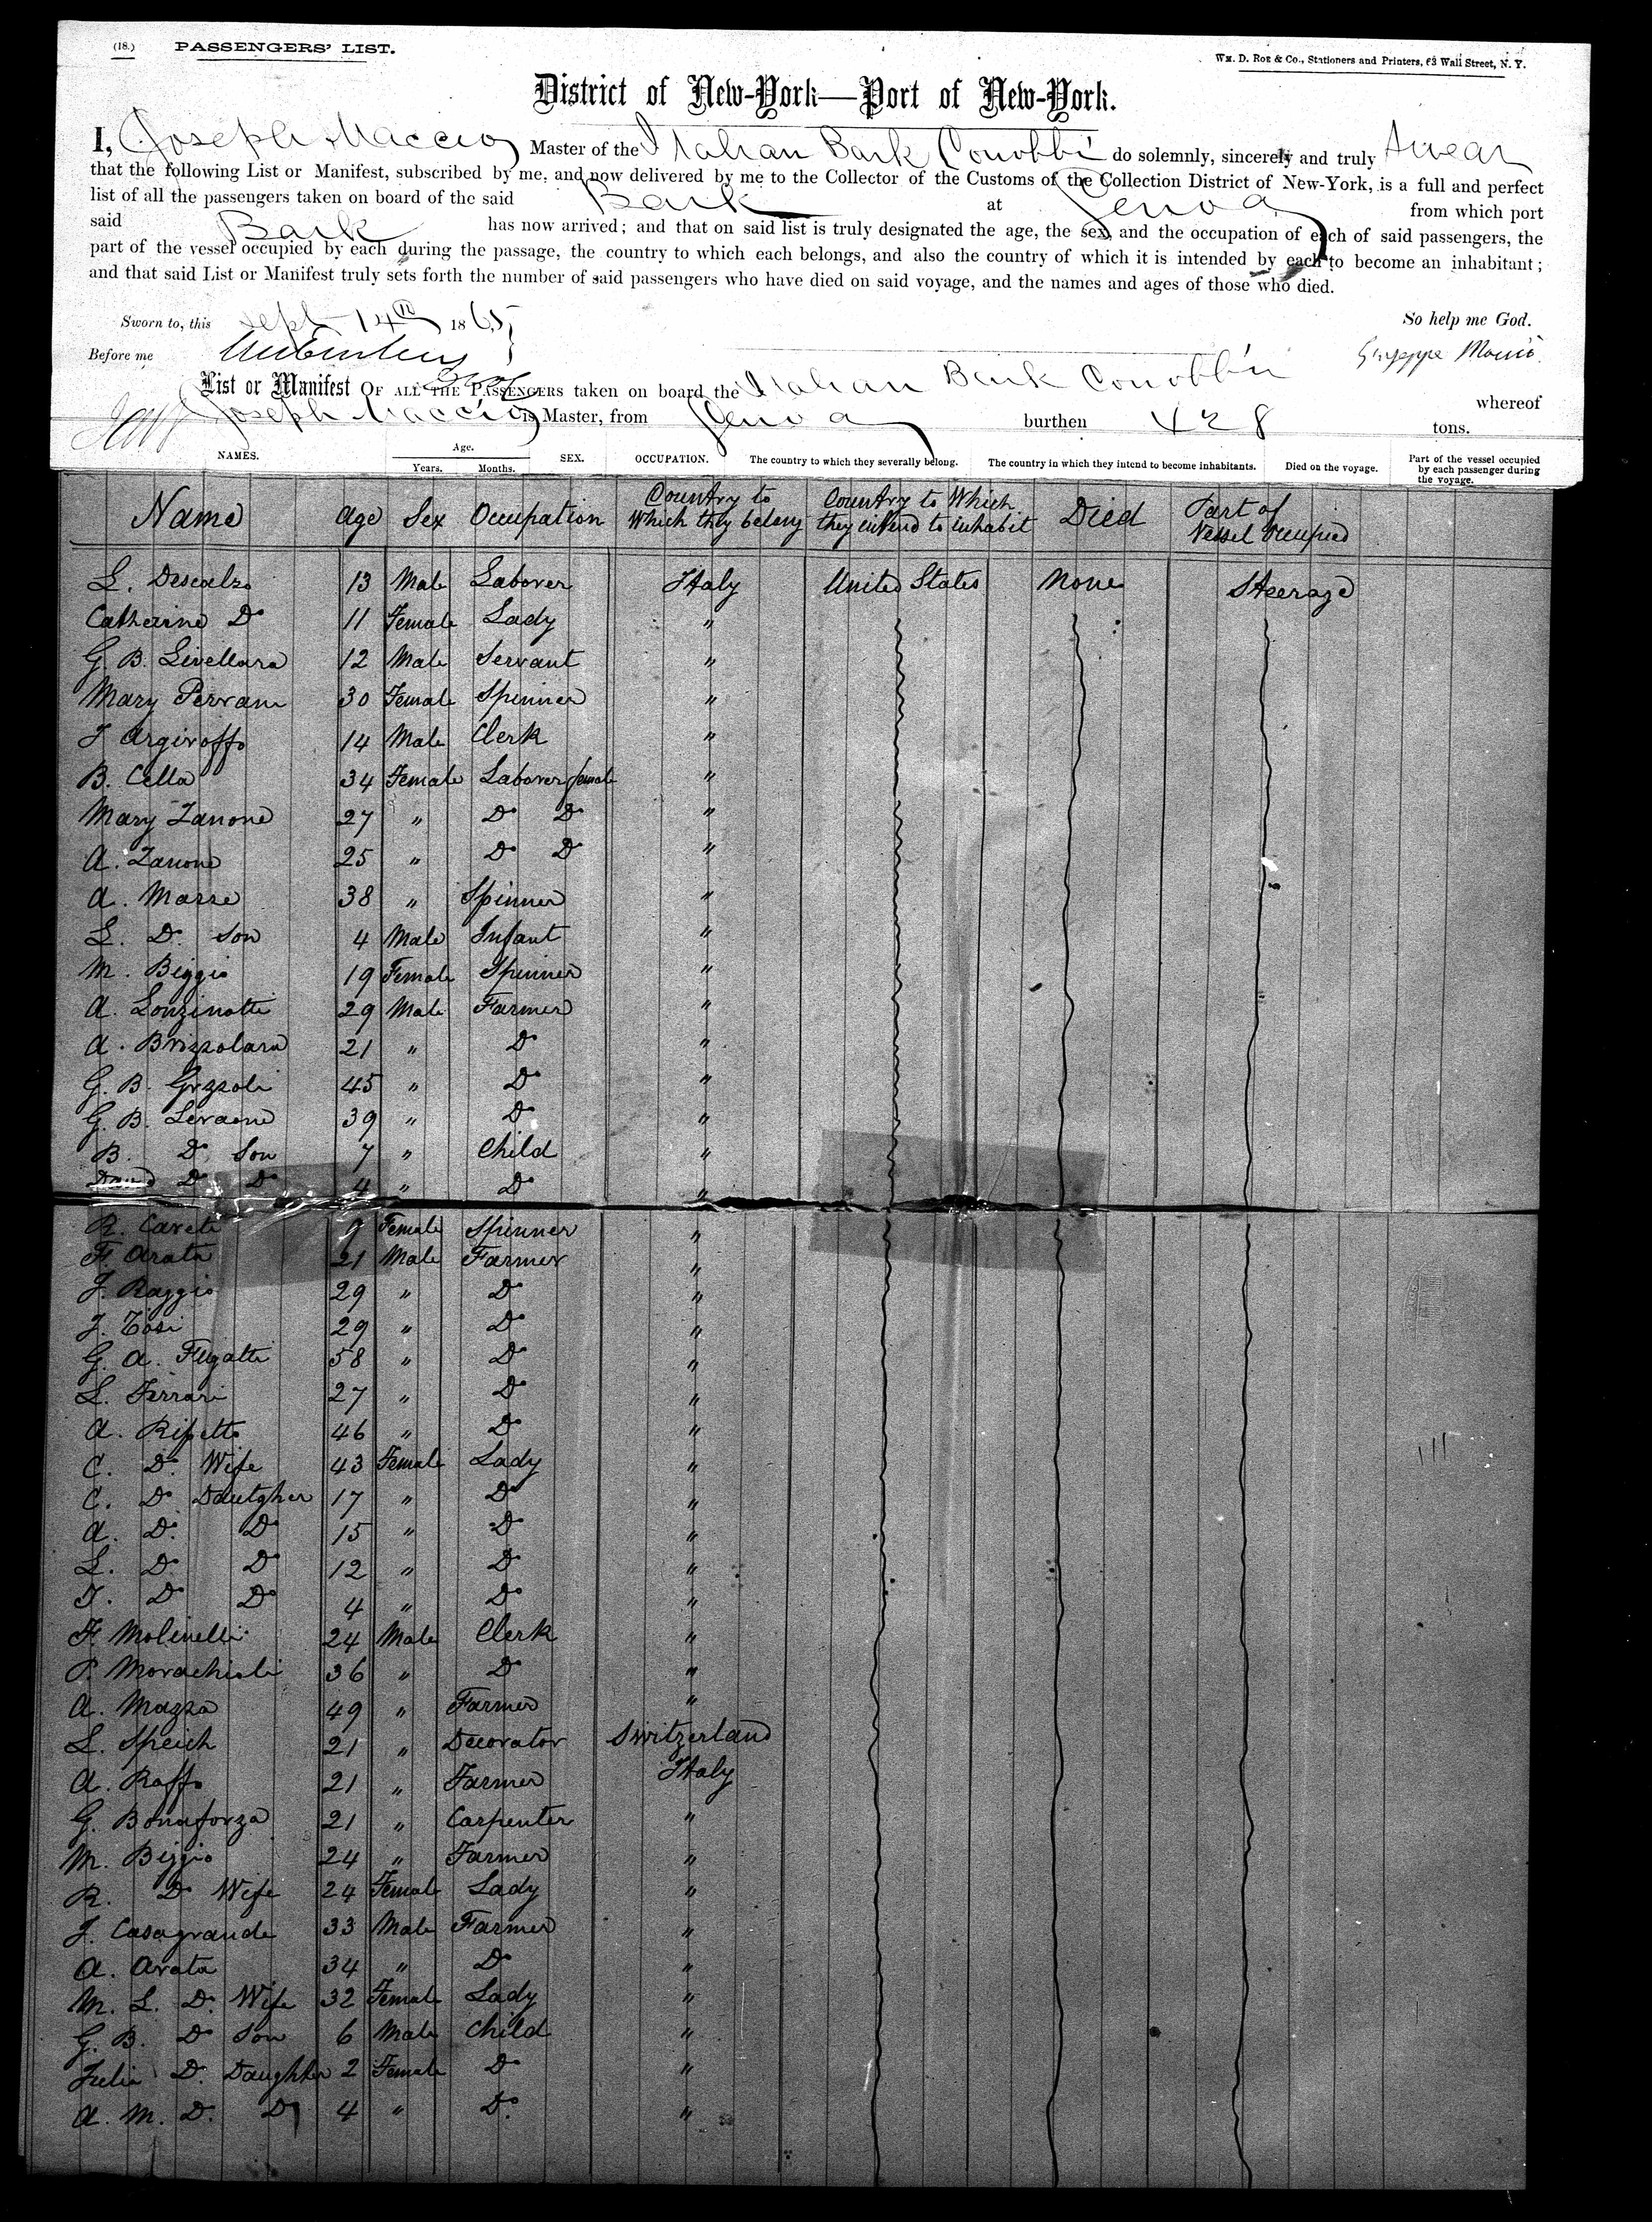 (18.) PASSENGERS' LIST.
Wm. D. Roe & Co., Stationers and Printers, 63 Wall Street, N. Y.
District of New-York—Port of New-York.
I, Joseph Maccio Master of the Italian Bark Conobbi do solemnly, sincerely and truly swear
that the following List or Manifest, subscribed by me, and now delivered by me to the Collector of the Customs of the Collection District of New-York, is a full and perfect
list of all the passengers taken on board of the said Bark at Genoa from which port
said Bark has now arrived; and that on said list is truly designated the age, the sex, and the occupation of each of said passengers, the
part of the vessel occupied by each during the passage, the country to which each belongs, and also the country of which it is intended by each to become an inhabitant;
and that said List or Manifest truly sets forth the number of said passengers who have died on said voyage, and the names and ages of those who died.
Sworn to, this Sept 14th 1865
So help me God.
Before me
Giuseppe
List or Manifest OF ALL THE PASSENGERS taken on board the Italian Bark Conobbi whereof
Joseph Maccio is Master, from Genoa burthen 428 tons.
NAMES. Age. Years. Months. SEX. OCCUPATION. The country to which they severally belong. The country in which they intend to become inhabitants. Died on the voyage. Part of the vessel occupied by each passenger during the voyage.
Name Age Sex Occupation Country to Which they belong Country to Which they intend to inhabit Died Part of Vessel Occupied
L. Descalzo 13 Male Laborer Italy United States None Steerage
Catherine Do 11 Female Lady "
G. B. Livellara 12 Male Servant "
Mary Pervani 30 Female Spinner "
J Argiroffo 14 Male Clerk "
B. Cella 34 Female Laborer female "
Mary Zanone 27 " Do Do "
A. Zanone 25 " Do Do "
A. Marre 38 " Spinner "
L. Do Son 4 Male Infant "
M. Biggio 19 Female Spinner "
A. Lonzinotti 29 Male Farmer "
A. Brizzolara 21 " Do "
G. B. Grzzoli 45 " Do "
G. B. Levaone 39 " Do "
B. Do Son 7 " Child "
David Do Do 4 " Do "
R. Caveti 9 Female Spinner "
F. Arata 21 Male Farmer "
J. Raggio 29 " Do "
J. Tosi 29 " Do "
G. A. Fugatti 58 " Do "
L. Ferrari 27 " Do "
A. Ripetto 46 " Do "
C. Do Wife 43 Female Lady "
C. Do Dautgher 17 " Do "
A. Do Do 15 " Do "
L. Do Do 12 " Do "
T. Do Do 4 " Do "
F. Molinelli 24 Male Clerk "
P. Morachioli 36 " Do "
A. Mazza 49 " Farmer "
L. Speich 21 " Decorator Switzerland
A. Raffo 21 " Farmer Italy
G. Bonaforza 21 " Carpenter "
M. Biggio 24 " Farmer "
R. Do Wife 24 Female Lady "
J. Casagrande 33 Male Farmer "
A. Arata 34 " Do "
M. L. Do Wife 32 Female Lady "
G. B. Do Son 6 Male Child "
Julia Do Daughter 2 Female Do "
A. M. Do Do 4 " Do "